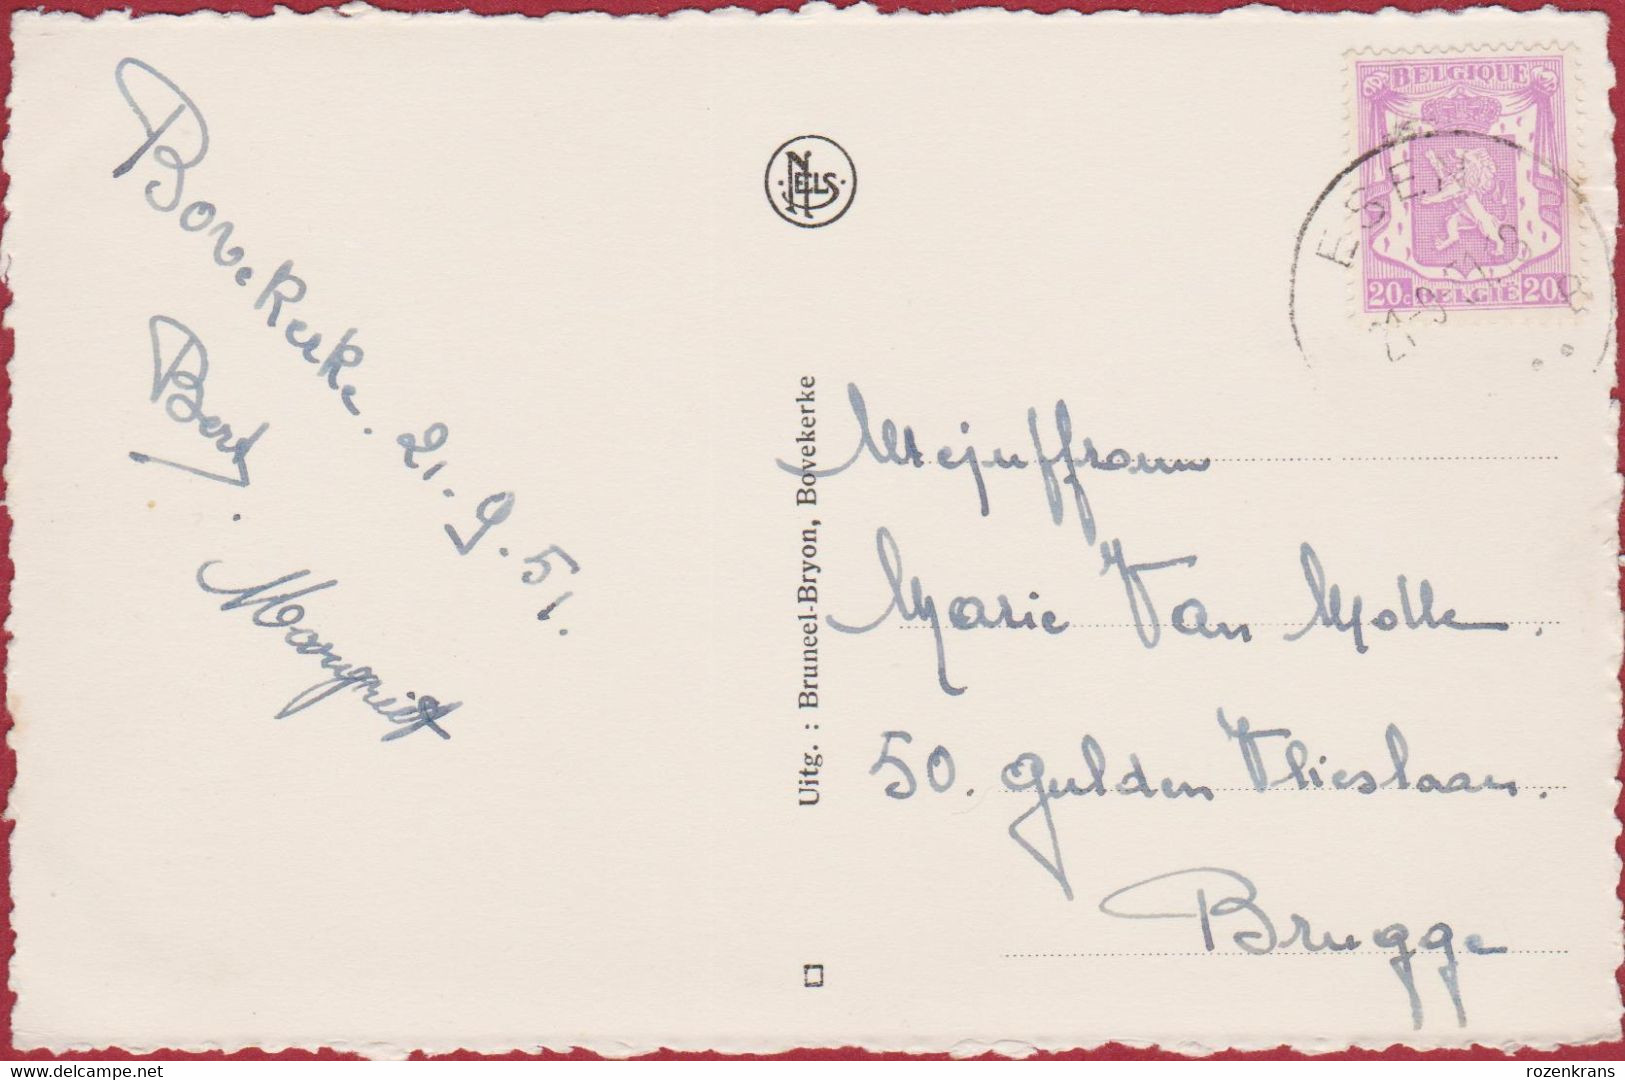 Bovekerke. 21.9.51.
Bert.
Mongriet
NELS
Uitg. : Bruneel-Bryon, Bovekerke
BELGIQUE
20c BELGIË 20c
ESEN
21-9
Mejuffrouw
Marie Van Molle.
50. Gulden Vlieslaan.
Brugge
delcampe.net
rozenkrans